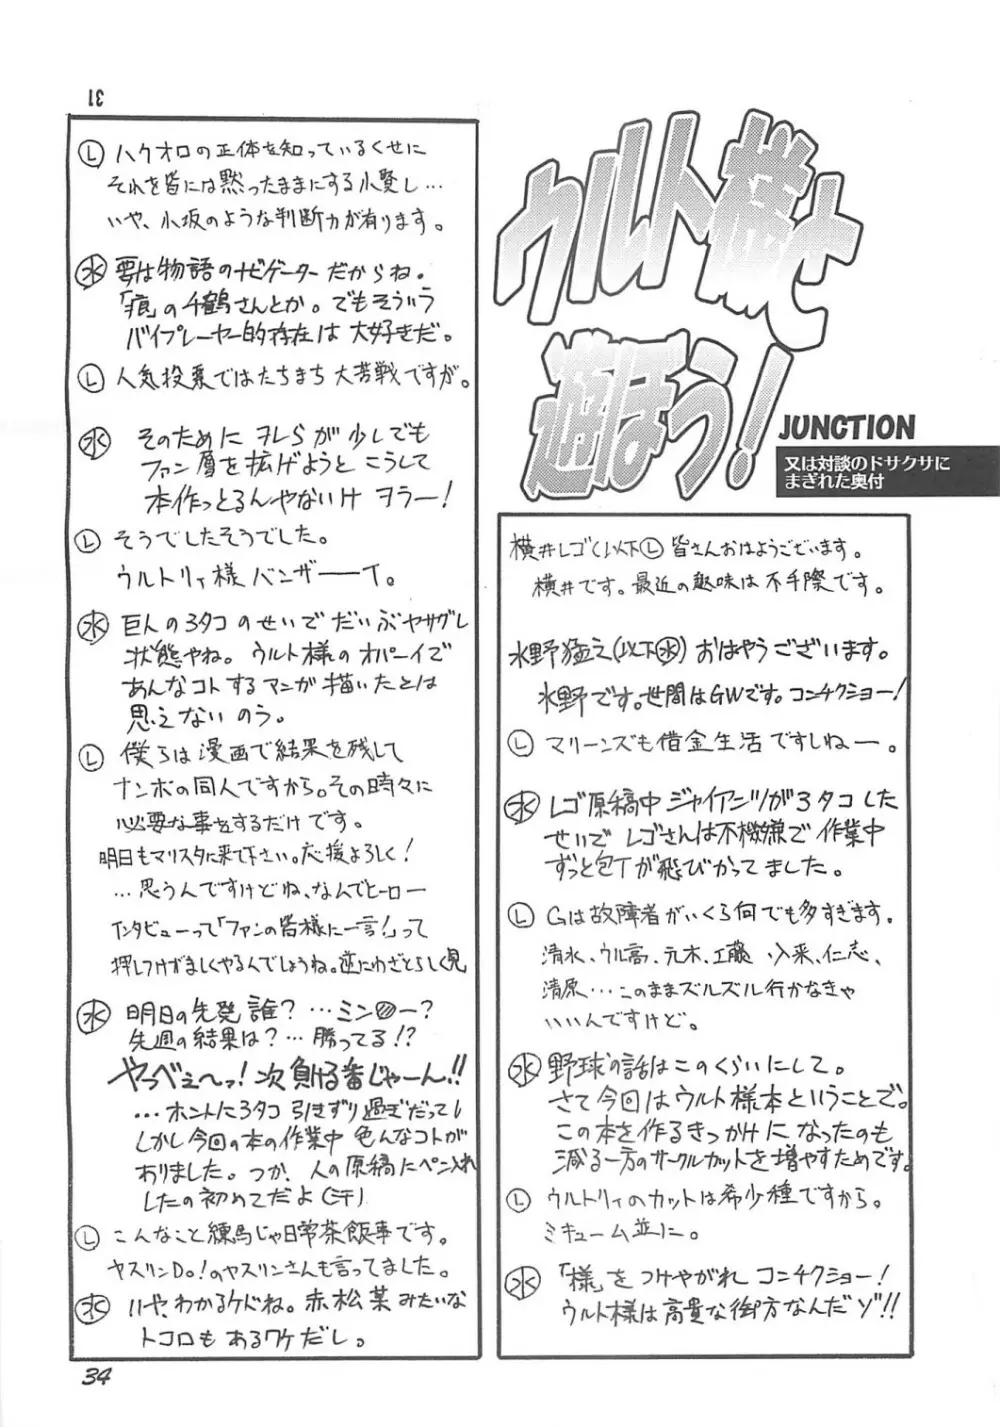 31
ウルト様と
遊ぼう!
JUNCTION
又は対談のドサクサに
まぎれた奥付
横井レゴ(以下Ⓛ) 皆さんおはようございます。
横井です。最近の趣味は不手際です。
水野猛之(以下㊌) おはやうございます。
水野です。世間はGWです。コンチクショー!
Ⓛ マリーンズも借金生活ですしねー。
㊌ レゴ原稿中 ジャイアンツが3タコした
せいで レゴさんは不機嫌で 作業中
ずっと包丁が飛びかってました。
Ⓛ Gは故障者がいくら何でも多すぎます。
清水、ウル高、元木、工藤 入来、仁志、
清原…このままズルズル行かなきゃ
いいんですけど。
㊌ 野球の話はこのくらいにして。
さて今回はウルト様本ということで。
この本を作るきっかけになったのも
減る一方のサークルカットを増やすためです。
Ⓛ ウルトリィのカットは希少種ですから。
ミキューム並に。
㊌ 「様」をつけやがれ コンチクショー!
ウルト様は高貴な御方なんだゾ!!
Ⓛ ハクオロの正体を知っているくせに
それを皆には黙ったままにする小賢し…
いや、小坂のような判断力が有ります。
㊌ 要は物語のナビゲーターだからね。
「痕」の千鶴さんとか。でもそういう
バイプレーヤー的存在は大好きだ。
Ⓛ 人気投票ではたちまち大苦戦ですが。
㊌ そのために ヲレらが少しでも
ファン層を拡げようと こうして
本作っとるんやないけ ヲラー!
Ⓛ そうでしたそうでした。
ウルトリィ様バンザーーイ。
㊌ 巨人の3タコのせいでだいぶヤサグレ
状態やね。ウルト様のオパーイで
あんなコトするマンガ描いたとは
思えないのう。
Ⓛ 僕らは漫画で結果を残して
ナンボの同人ですから。その時々に
必要な事をするだけです。
明日もマリスタに来て下さい。応援よろしく!
…思うんですけどね、なんでヒーロー
インタビューって「ファンの皆様に一言!」って
押しつけがましくやるんでしょうね。逆にわざとらしく見
㊌ 明日の先発 誰?…ミン◍ー?
先週の結果は?…勝ってる!?
やっべぇ〜っ!次負ける番じゃーん!!
…ホントに3タコ引きずり過ぎだってし
しかし今回の本の作業中 色んなコトが
ありました。つか、人の原稿にペン入れ
したの初めてだよ(汗)
Ⓛ こんなこと練馬じゃ日常茶飯事です。
ヤスリンDo!のヤスリンさんも言ってました。
㊌ いや、わかるケドね。赤松葉みたいな
トコロもあるワケだし。
34